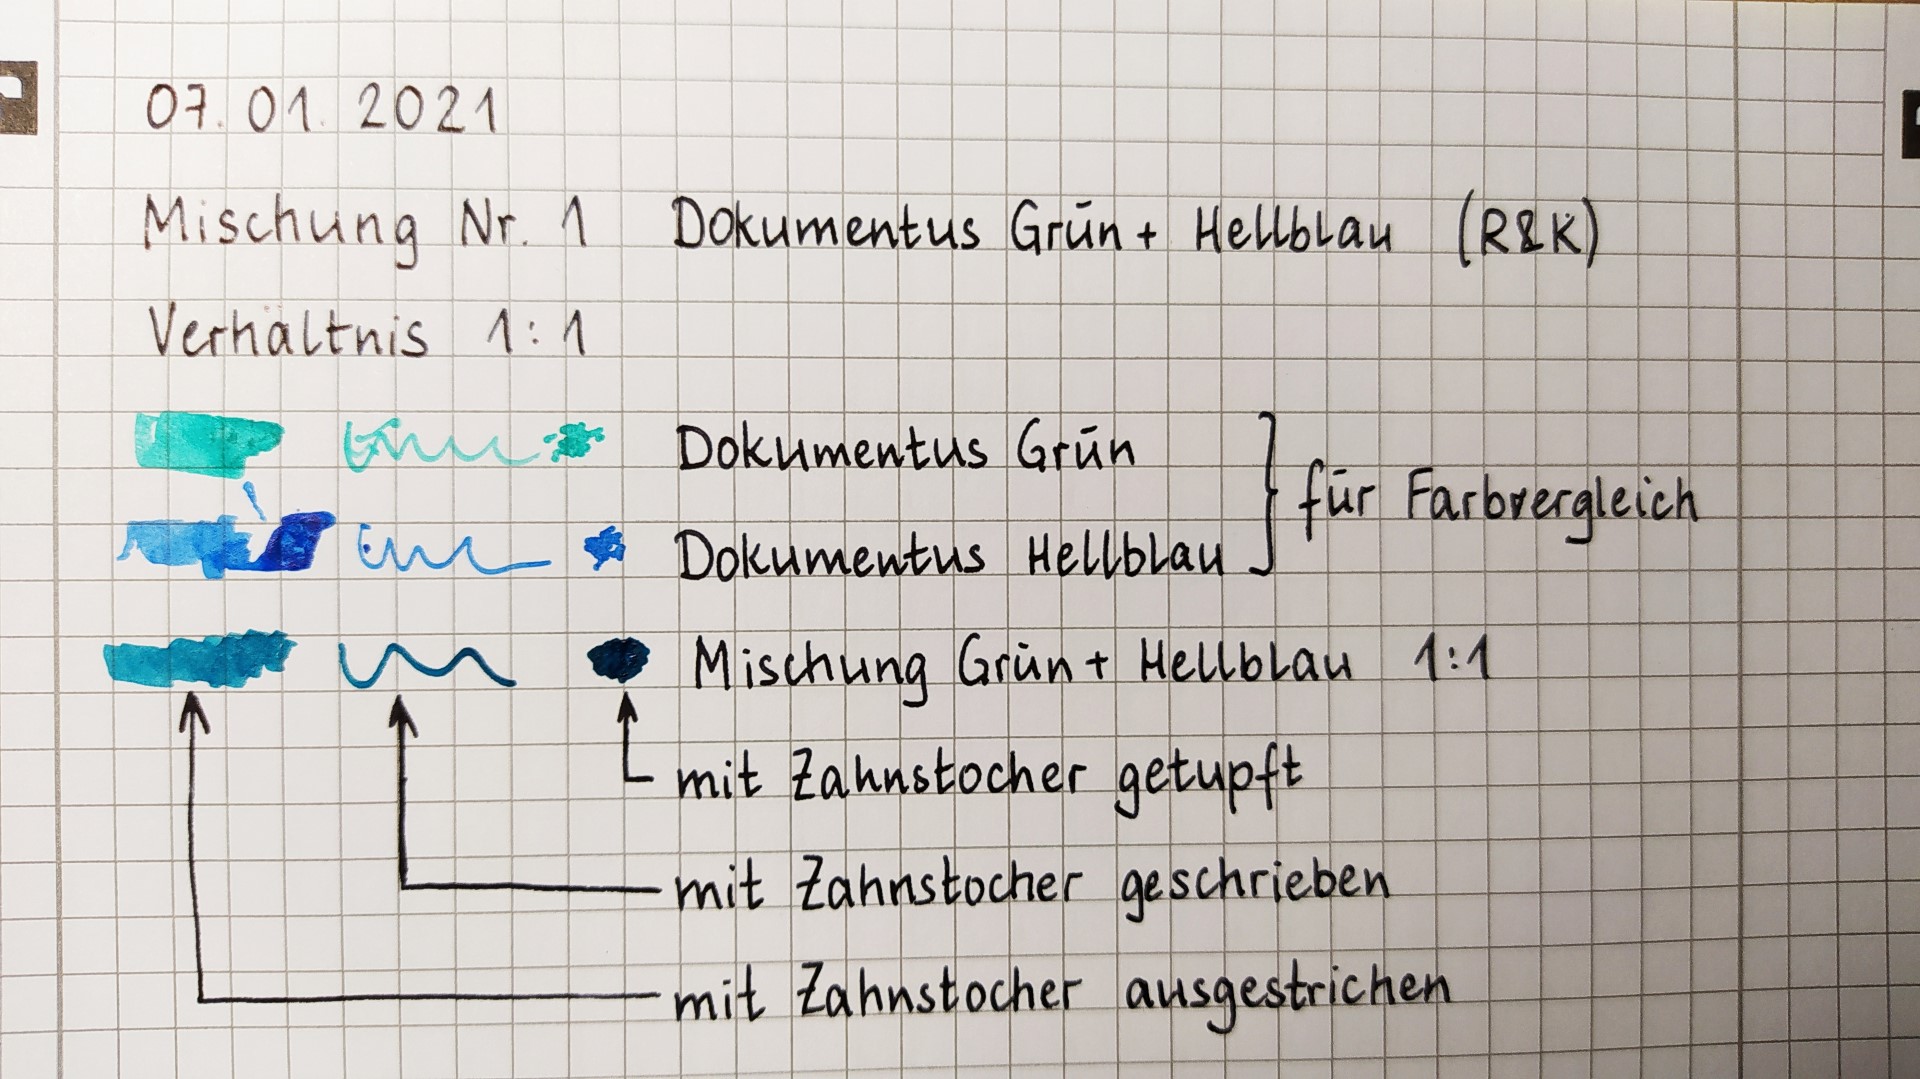 07.01.2021
Mischung Nr. 1 Dokumentus Grün + Hellblau (R&K)
Verhältnis 1:1
Dokumentus Grün
für Farbvergleich
Dokumentus Hellblau
Mischung Grün + Hellblau 1:1
mit Zahnstocher getupft
mit Zahnstocher geschrieben
mit Zahnstocher ausgestrichen